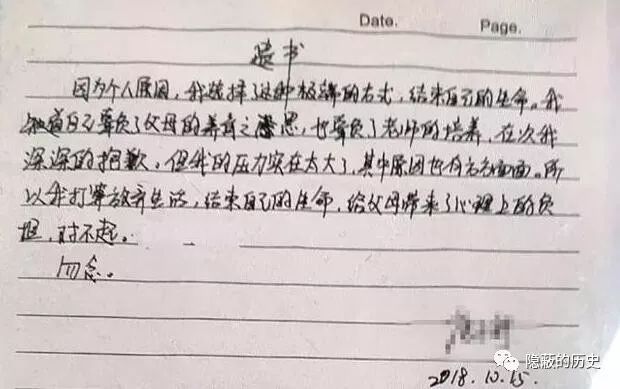 Date.
Page.
遗书
因为个人原因,我选择了这种极端的方式,结束自己的生命。我
知道自己辜负了父母的养育之恩,也辜负了老师的培养,在次我
深深的抱歉。但我的压力实在太大了,其中原因也有方方面面。所
以我打算放弃生活,结束自己的生命,给父母带来了心理上的负
担,对不起。
勿念。
2018.10.15.
隐蔽的历史